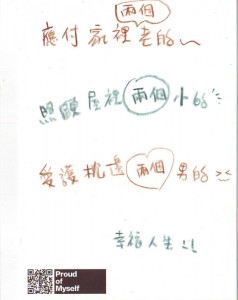 應付家裡兩個老的
照顧屋裡兩個小的
愛護枕邊兩個男的
幸福人生
Proud
of
Myself